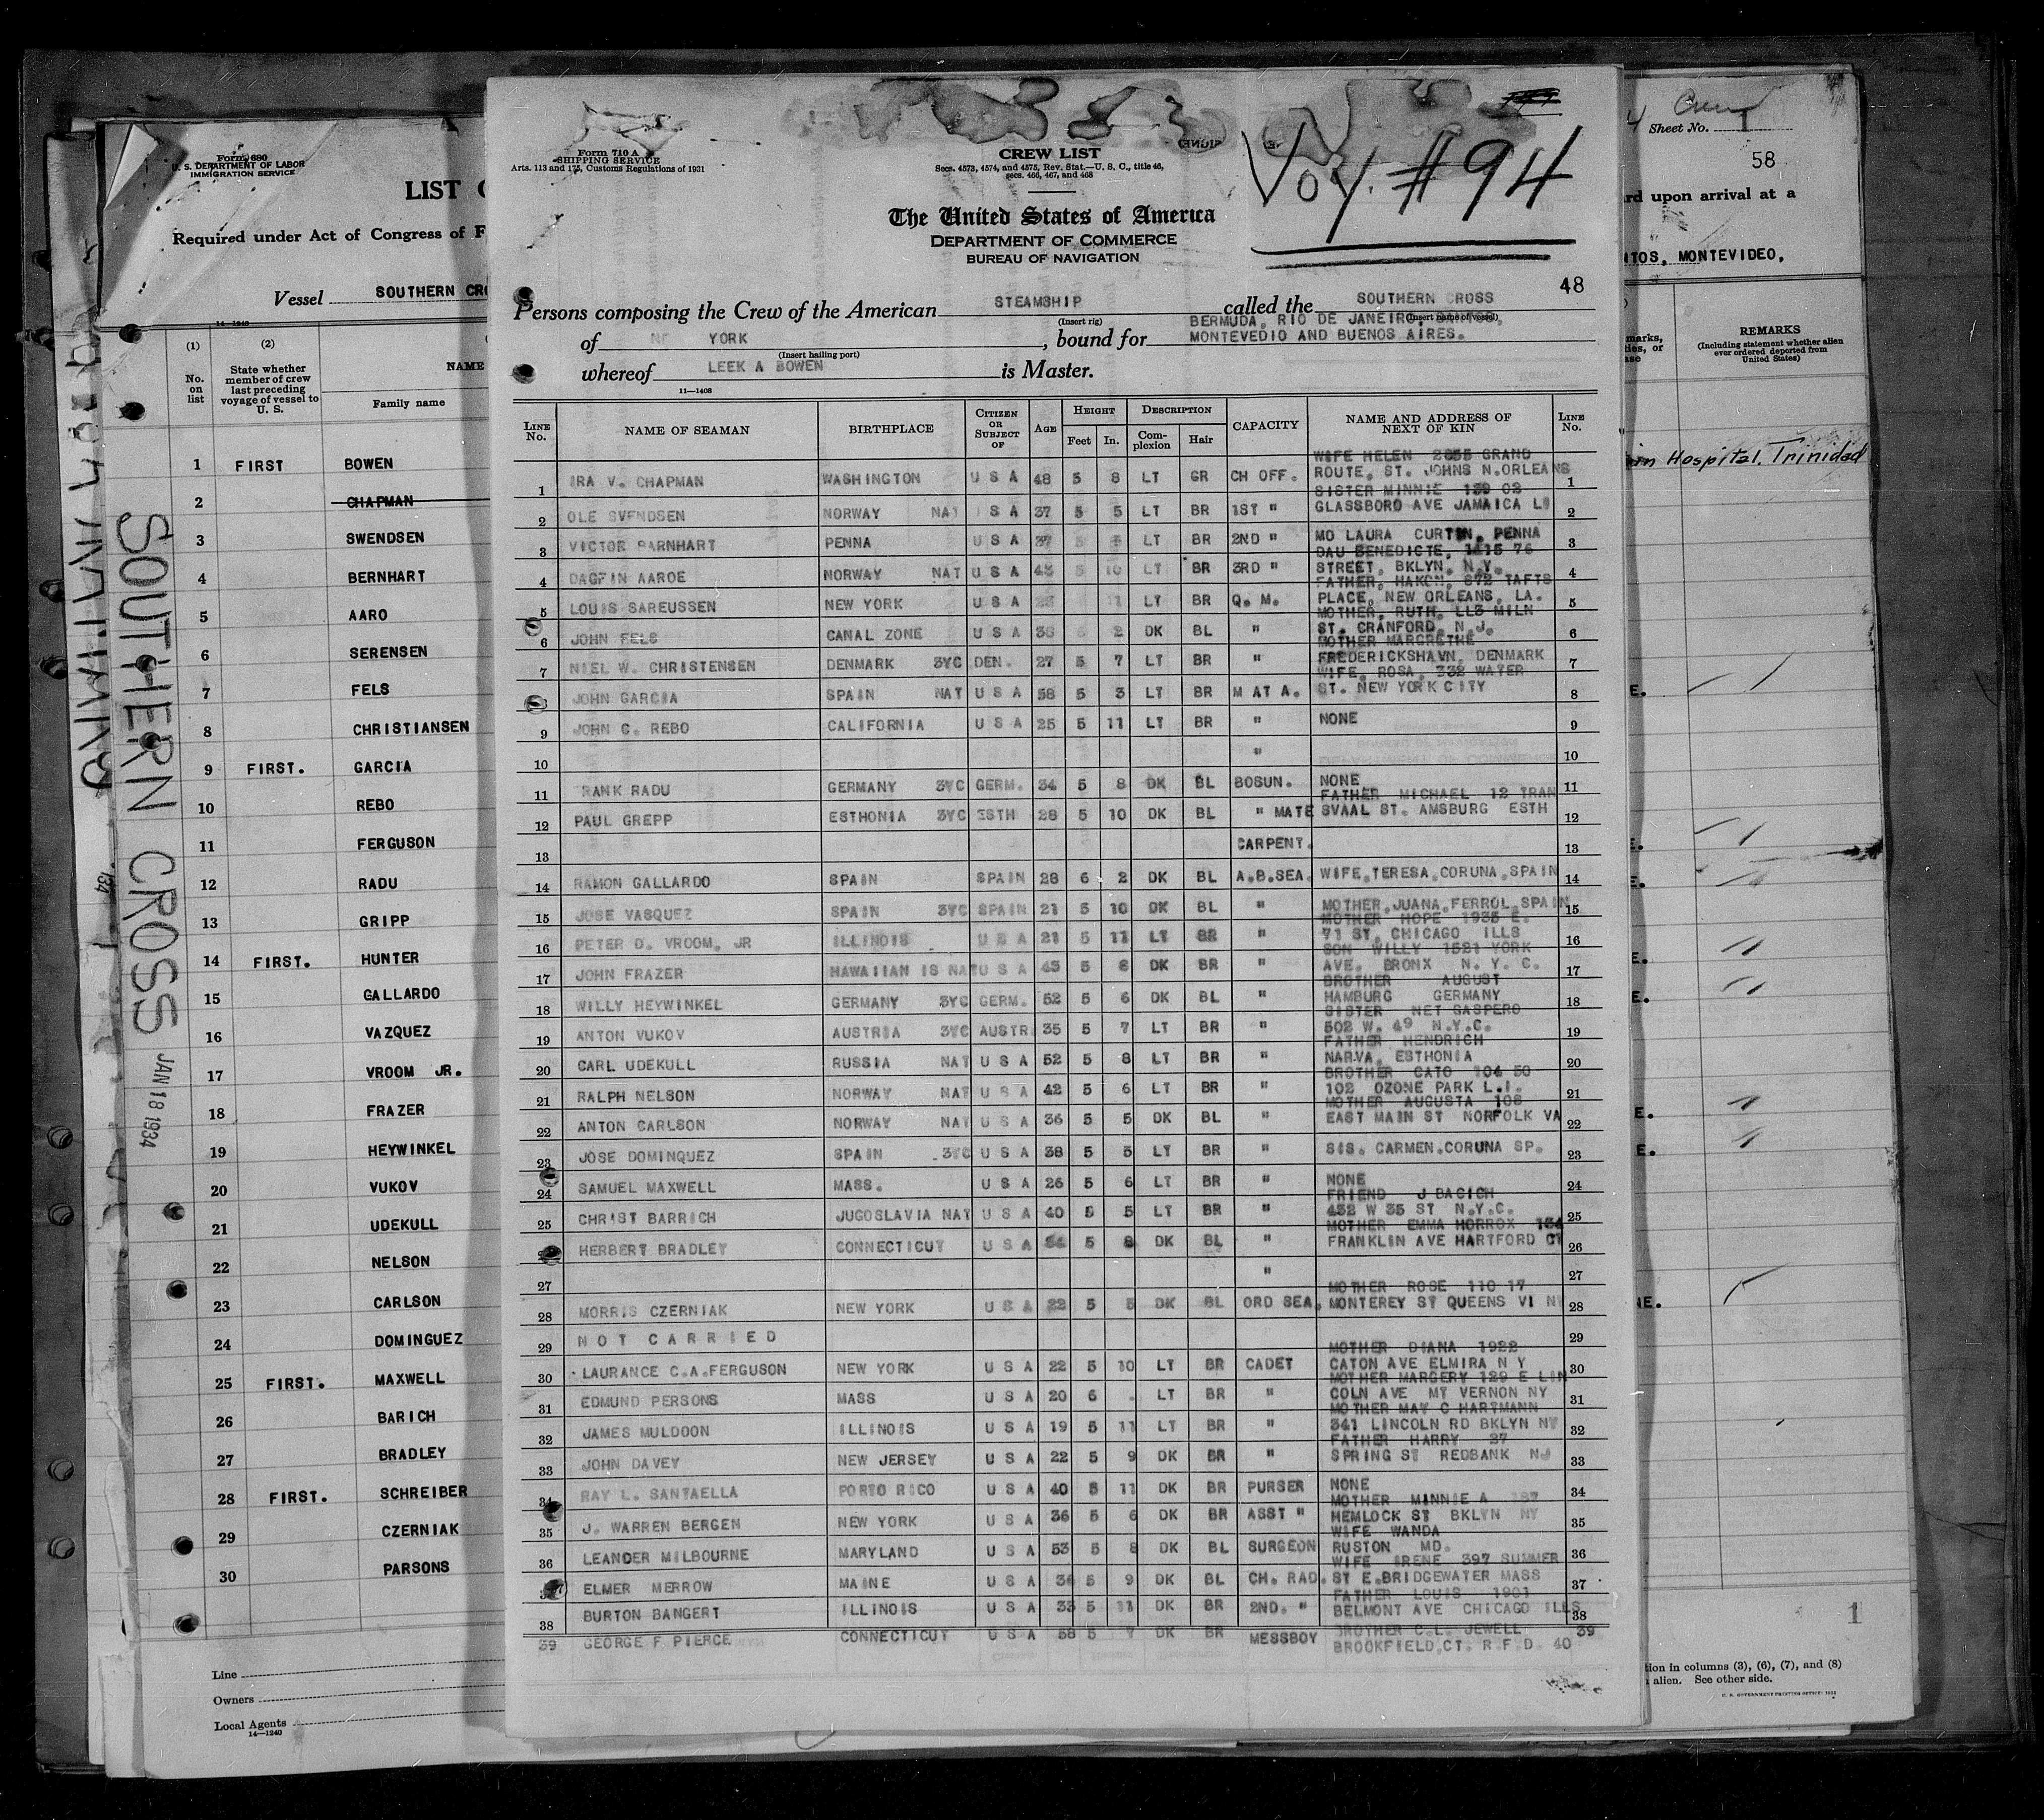 Form 680
U. S. DEPARTMENT OF LABOR
IMMIGRATION SERVICE
LIST
Required under Act of Congress of F
Vessel SOUTHERN CR
14—1240
(1) (2)
No. on list
State whether member of crew last preceding voyage of vessel to U. S.
NAME
Family name
1 FIRST BOWEN
2 CHAPMAN
3 SWENDSEN
4 BERNHART
5 AARO
6 SERENSEN
7 FELS
8 CHRISTIANSEN
9 FIRST. GARCIA
10 REBO
11 FERGUSON
12 RADU
13 GRIPP
14 FIRST. HUNTER
15 GALLARDO
16 VAZQUEZ
17 VROOM JR.
18 FRAZER
19 HEYWINKEL
20 VUKOV
21 UDEKULL
22 NELSON
23 CARLSON
24 DOMINGUEZ
25 FIRST. MAXWELL
26 BARICH
27 BRADLEY
28 FIRST. SCHREIBER
29 CZERNIAK
30 PARSONS
Line
Owners
Local Agents
14—1240
SOUTHERN CROSS
JAN 18 1934
Form 710 A
SHIPPING SERVICE
Arts. 113 and 175, Customs Regulations of 1931
CREW LIST
Secs. 4573, 4574, and 4575, Rev. Stat.—U. S. C., title 46,
secs. 466, 467, and 468
Voy. #94
The United States of America
DEPARTMENT OF COMMERCE
BUREAU OF NAVIGATION
48
Persons composing the Crew of the American STEAMSHIP called the SOUTHERN CROSS
(Insert rig) (Insert name of vessel)
of YORK, bound for BERMUDA, RIO DE JANEIRO,
MONTEVEDIO AND BUENOS AIRES.
(Insert hailing port)
whereof LEEK A BOWEN is Master.
11—1408
LINE No. NAME OF SEAMAN BIRTHPLACE CITIZEN OR SUBJECT OF AGE HEIGHT Feet In. DESCRIPTION Complexion Hair CAPACITY NAME AND ADDRESS OF NEXT OF KIN LINE No.
WIFE HELEN 2655 GRAND
1 IRA V. CHAPMAN WASHINGTON U S A 48 5 8 LT GR CH OFF. ROUTE, ST. JOHNS N.ORLEANS 1
SISTER MINNIE 139 02
2 OLE SVENDSEN NORWAY NAT U S A 37 5 5 LT BR 1ST " GLASSBORO AVE JAMAICA 2
3 VICTOR BARNHART PENNA U S A 37 5 5 LT BR 2ND " MO LAURA CURTIN, PENNA 3
DAU BENEDICTE, 1415 76
4 DAGFIN AAROE NORWAY NAT U S A 43 5 10 LT BR 3RD " STREET, BKLYN, N.Y. 4
FATHER, HAKON, 672 TAFTS
5 LOUIS SAREUSSEN NEW YORK U S A 11 LT BR Q. M. PLACE, NEW ORLEANS, LA. 5
MOTHER, RUTH, LL3 MILN
6 JOHN FELS CANAL ZONE U S A 2 DK BL " ST. CRANFORD, N.J. 6
MOTHER MARGRETHE
7 NIEL W. CHRISTENSEN DENMARK 3YC DEN. 27 5 7 LT BR " FREDERICKSHAVN, DENMARK 7
WIFE, ROSA, 332 WATER
8 JOHN GARCIA SPAIN NAT U S A 58 5 3 LT BR M AT A. ST. NEW YORK CITY 8
9 JOHN C. REBO CALIFORNIA U S A 25 5 11 LT BR " NONE 9
10 " 10
11 RANK RADU GERMANY 3YC GERM. 34 5 8 DK BL BOSUN. NONE 11
FATHER MICHAEL 12 TRAN
12 PAUL GREPP ESTHONIA 3YC ESTH 28 5 10 DK BL " MATE SVAAL ST. AMSBURG ESTH 12
13 CARPENT. 13
14 RAMON GALLARDO SPAIN SPAIN 28 6 2 DK BL A.B.SEA. WIFE,TERESA,CORUNA,SPAIN 14
15 JOSE VASQUEZ SPAIN 3YC SPAIN 21 5 10 DK BL " MOTHER,JUANA,FERROL,SPAIN 15
MOTHER HOPE 1935 E.
16 PETER D. VROOM, JR ILLINOIS U S A 21 5 11 LT BR " 71 ST, CHICAGO ILLS 16
SON WILLY 1521 YORK
17 JOHN FRAZER HAWAIIAN IS NAT U S A 45 5 8 DK BR " AVE. BRONX N. Y. C. 17
BROTHER AUGUST
18 WILLY HEYWINKEL GERMANY 3YC GERM. 52 5 6 DK BL " HAMBURG GERMANY 18
SISTER NET GASPERO
19 ANTON VUKOV AUSTRIA 3YC AUSTR. 35 5 7 LT BR " 502 W. 49 N.Y.C. 19
FATHER HENDRICH
20 CARL UDEKULL RUSSIA NAT U S A 52 5 8 LT BR " NARVA, ESTHONIA 20
BROTHER CATO 104 50
21 RALPH NELSON NORWAY NAT U S A 42 5 6 LT BR " 102 OZONE PARK L.I. 21
MOTHER AUGUSTA 108
22 ANTON CARLSON NORWAY NAT U S A 36 5 5 DK BL " EAST MAIN ST NORFOLK VA 22
23 JOSE DOMINQUEZ SPAIN 3YC U S A 38 5 5 LT BR " SIS. CARMEN.CORUNA SP. 23
24 SAMUEL MAXWELL MASS. U S A 26 5 6 LT BR " NONE 24
FRIEND J BAGICH
25 CHRIST BARRICH JUGOSLAVIA NAT U S A 40 5 5 LT BR " 432 W 35 ST N.Y.C. 25
MOTHER EMMA HORROX 134
26 HERBERT BRADLEY CONNECTICUT U S A 5 8 DK BL " FRANKLIN AVE HARTFORD CT 26
27 " 27
MOTHER ROSE 110 17
28 MORRIS CZERNIAK NEW YORK U S A 22 5 5 DK BL ORD SEA. MONTEREY ST QUEENS VI N 28
29 N O T C A R R I E D 29
MOTHER DIANA 1922
30 LAURANCE C.A.FERGUSON NEW YORK U S A 22 5 10 LT BR CADET CATON AVE ELMIRA N Y 30
MOTHER MARGERY 129 E LIN
31 EDMUND PERSONS MASS U S A 20 6 . LT BR " COLN AVE MT VERNON NY 31
MOTHER MAY C HARTMANN
32 JAMES MULDOON ILLINOIS U S A 19 5 11 LT BR " 341 LINCOLN RD BKLYN NY 32
FATHER HARRY 37
33 JOHN DAVEY NEW JERSEY U S A 22 5 9 DK BR " SPRING ST REDBANK NJ 33
34 RAY L. SANTAELLA PORTO RICO U S A 40 5 11 DK BR PURSER NONE 34
MOTHER MINNIE A 187
35 J. WARREN BERGEN NEW YORK U S A 36 5 6 DK BR ASST " HEMLOCK ST BKLYN NY 35
WIFE WANDA
36 LEANDER MILBOURNE MARYLAND U S A 53 5 8 DK BL SURGEON RUSTON MD. 36
WIFE IRENE 397 SUMMER
37 ELMER MERROW MAINE U S A 36 5 9 DK BL CH. RAD. ST E.BRIDGEWATER MASS 37
FATHER LOUIS 1901
38 BURTON BANGERT ILLINOIS U S A 33 5 11 DK BR 2ND. " BELMONT AVE CHICAGO ILLS 38
39 GEORGE F. PIERCE CONNECTICUT U S A 58 5 DK BR MESSBOY BROTHER C.L. JEWELL 39
BROOKFIELD,CT. R.F.D. 40
Crew
Sheet No. 1
58
rd upon arrival at a
TOS, MONTEVIDEO,
REMARKS
(Including statement whether alien ever ordered deported from United States)
in Hospital, Trinidad
1
tion in columns (3), (6), (7), and (8)
alien. See other side.
U. S. GOVERNMENT PRINTING OFFICE